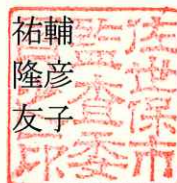 祐輔
隆彦
友子
佐世保市
監査委